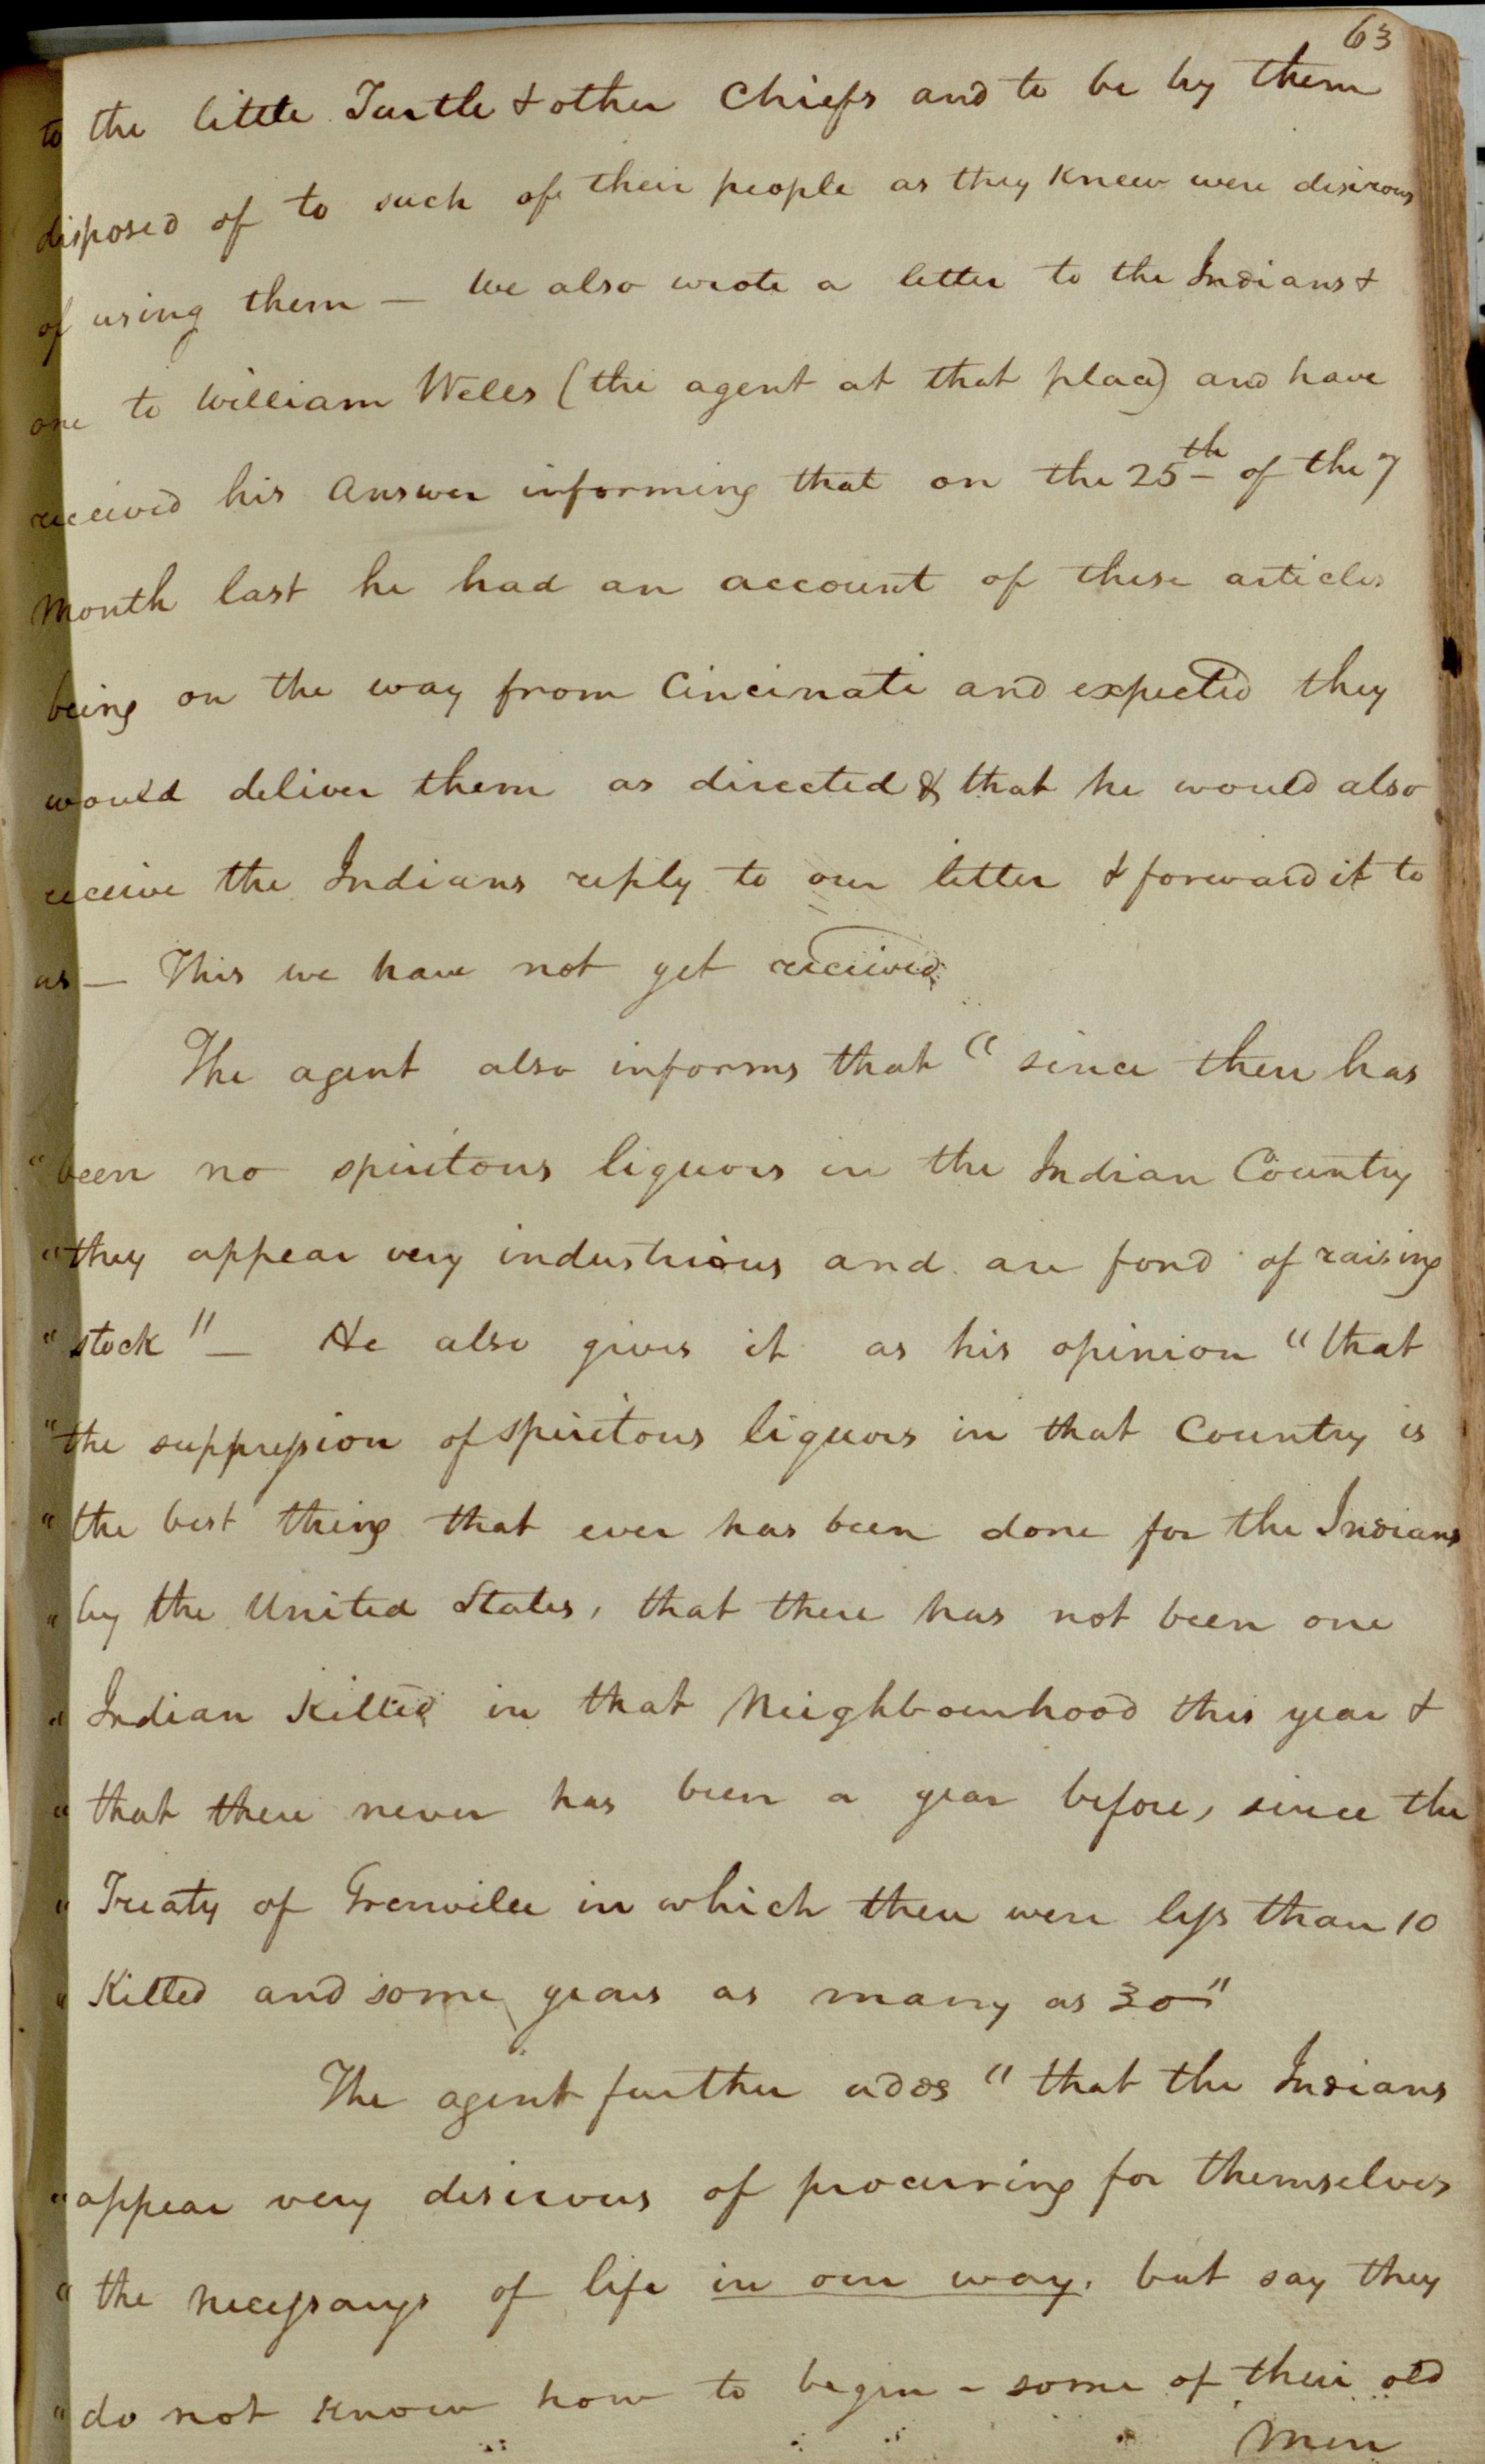 63
to the little Turtle & other Chiefs and to be by them
disposed of to such of their people as they knew were desirous
of using them — We also wrote a letter to the Indians &
one to William Wells (the agent at that place) and have
received his answer informing that on the 25th of the 7
month last he had an account of these articles
being on the way from Cincinati and expected they
would deliver them as directed & that he would also
receive the Indians reply to our letter & forward it to
us — This we have not yet received.
The agent also informs that "since there has
"been no spiritous liquors in the Indian Country
"they appear very industrious and are fond of raising
"stock" — He also gives it as his opinion "that
"the suppression of spiritous liquors in that Country is
"the best thing that ever has been done for the Indians
"by the United States, that there has not been one
"Indian Killed in that Neighbourhood this year &
"that there never has been a year before, since the
"Treaty of Grenville in which there were less than 10
"Killed and some years as many as 30"
The agent further adds "that the Indians
"appear very desirous of procuring for themselves
"the necessarys of life in our way, but say they
"do not know how to begin - some of their old
Men